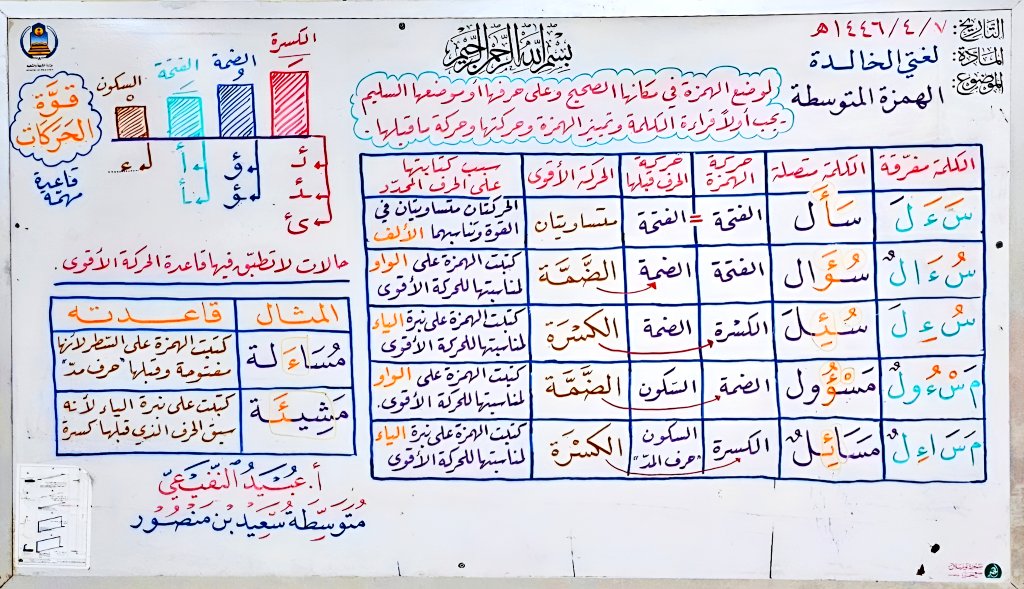 بِسْمِ اللهِ الرَّحْمٰنِ الرَّحِيْمِ
التاريخ: ٧ / ٤ / ١٤٤٦هـ
المادة: لغتي الخالدة
الموضوع: الهمزة المتوسطة
لوضع الهمزة في مكانها الصحيح وعلى حرفها أو موضعها السليم
يجب أولاً قراءة الكلمة وتمييز الهمزة وحركتها وحركة ما قبلها.
الكلمة مفرّقة | الكلمة متصلة | حركة الهمزة | حركة الحرف قبلها | الحركة الأقوى | سبب كتابتها على الحرف المحدّد
سَ ءَ لَ | سَأَل | الفتحة = | الفتحة | متساويتان | الحركتان متساويتان في القوة وتناسبهما الألف
سُ ءَ ا لٌ | سُؤَال | الفتحة | الضمة | الضَّمَّة | كتبت الهمزة على الواو لمناسبتها للحركة الأقوى
سُ ءِ لَ | سُئِلَ | الكسْرة | الضمة | الكسْرَة | كتبت الهمزة على نبرة الياء لمناسبتها للحركة الأقوى.
مَ سْ ءُ و لٌ | مَسْؤُول | الضمة | السّكون | الضَّمَّة | كتبت الهمزة على الواو لمناسبتها للحركة الأقوى.
مَ سَ ا ءِ لٌ | مَسَائِلٌ | الكسرة | السكون "حرف المدّ" | الكسْرَة | كتبت الهمزة على نبرة الياء لمناسبتها للحركة الأقوى
قوَّة
الحَركات
قاعدة
مهمّة
الكسرة
الضمة
الفتحة
السكون
ئـ
ـئـ
ئ
ؤ
ـؤ
أ
ـأ
ء
حالات لا تطبّق فيها قاعدة الحركة الأقوى.
المثال | قاعدته
مُسَاءَلة | كتبت الهمزة على السّطر لأنها مفتوحة وقبلها "حرف مدّ"
مَشِيئَة | كتبت على نبرة الياء لأنه سبق الحرف الذي قبلها كسرة
أ. عُبَيْدُ النّفَيْعِيّ
مُتَوَسِّطَة سَّعِيد بْن مَنْصُور